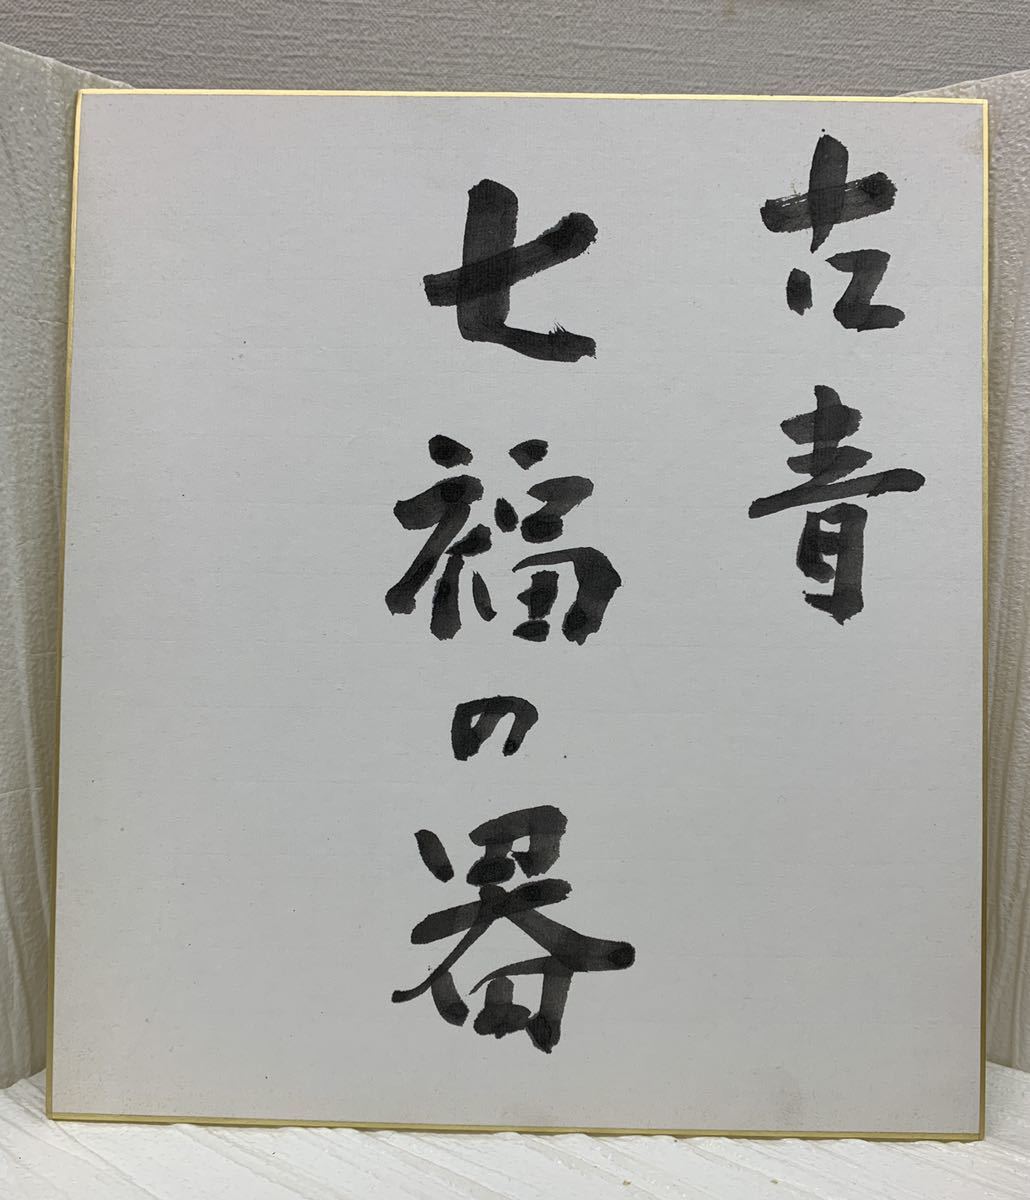 古青
七福の器